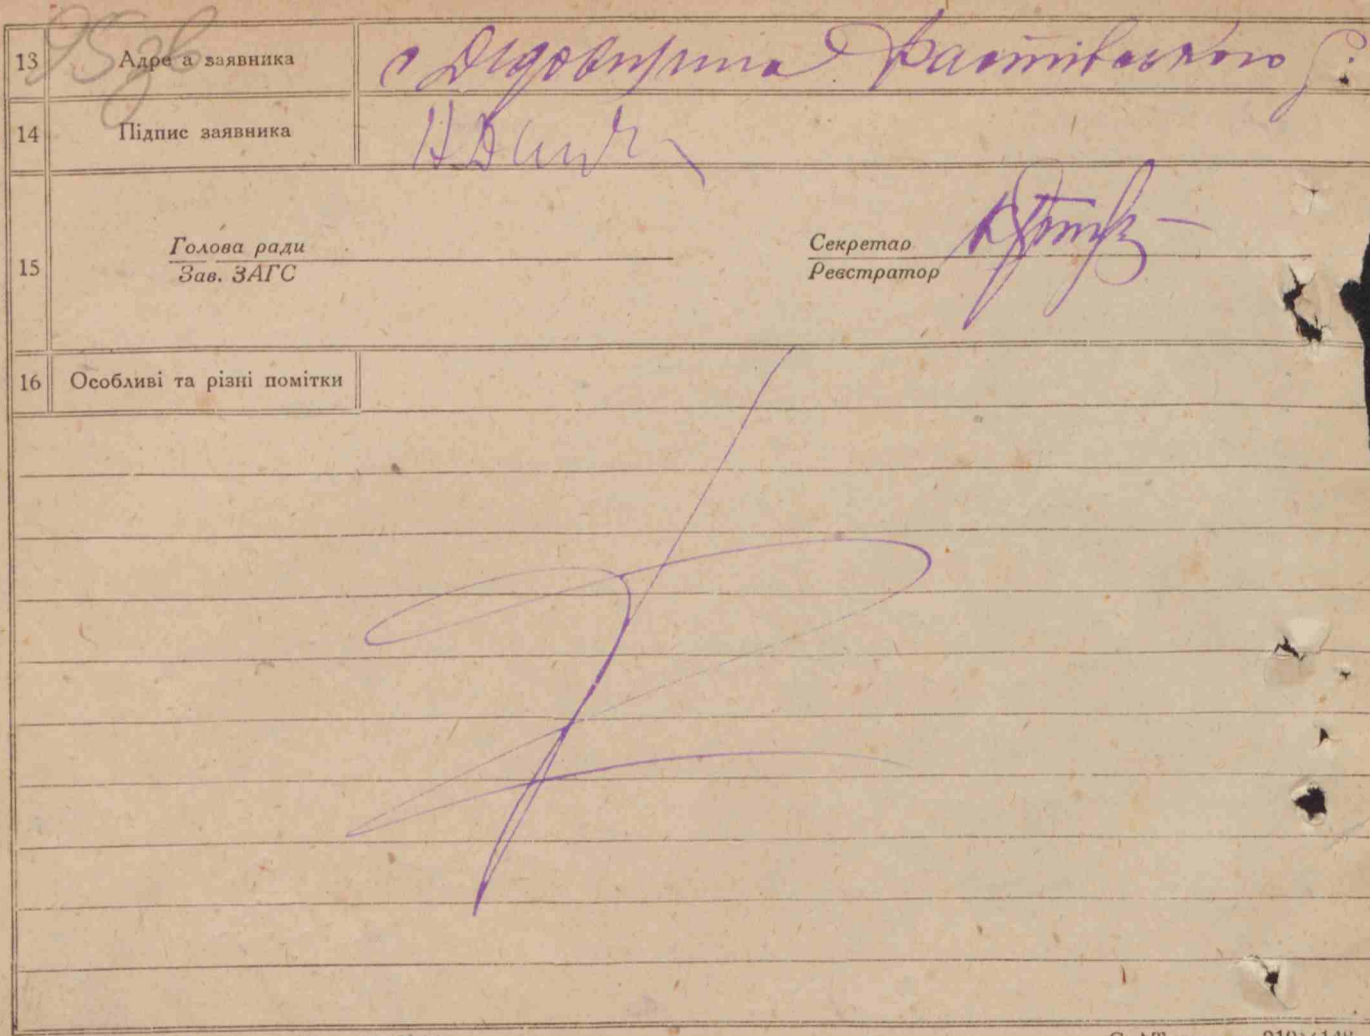 95 зв
13 Адре а заявника с Дідовщина Фастівського р.
14 Підпис заявника
15 Голова ради
Зав. ЗАГС
Секретар
Реєстратор
16 Особливі та різні помітки